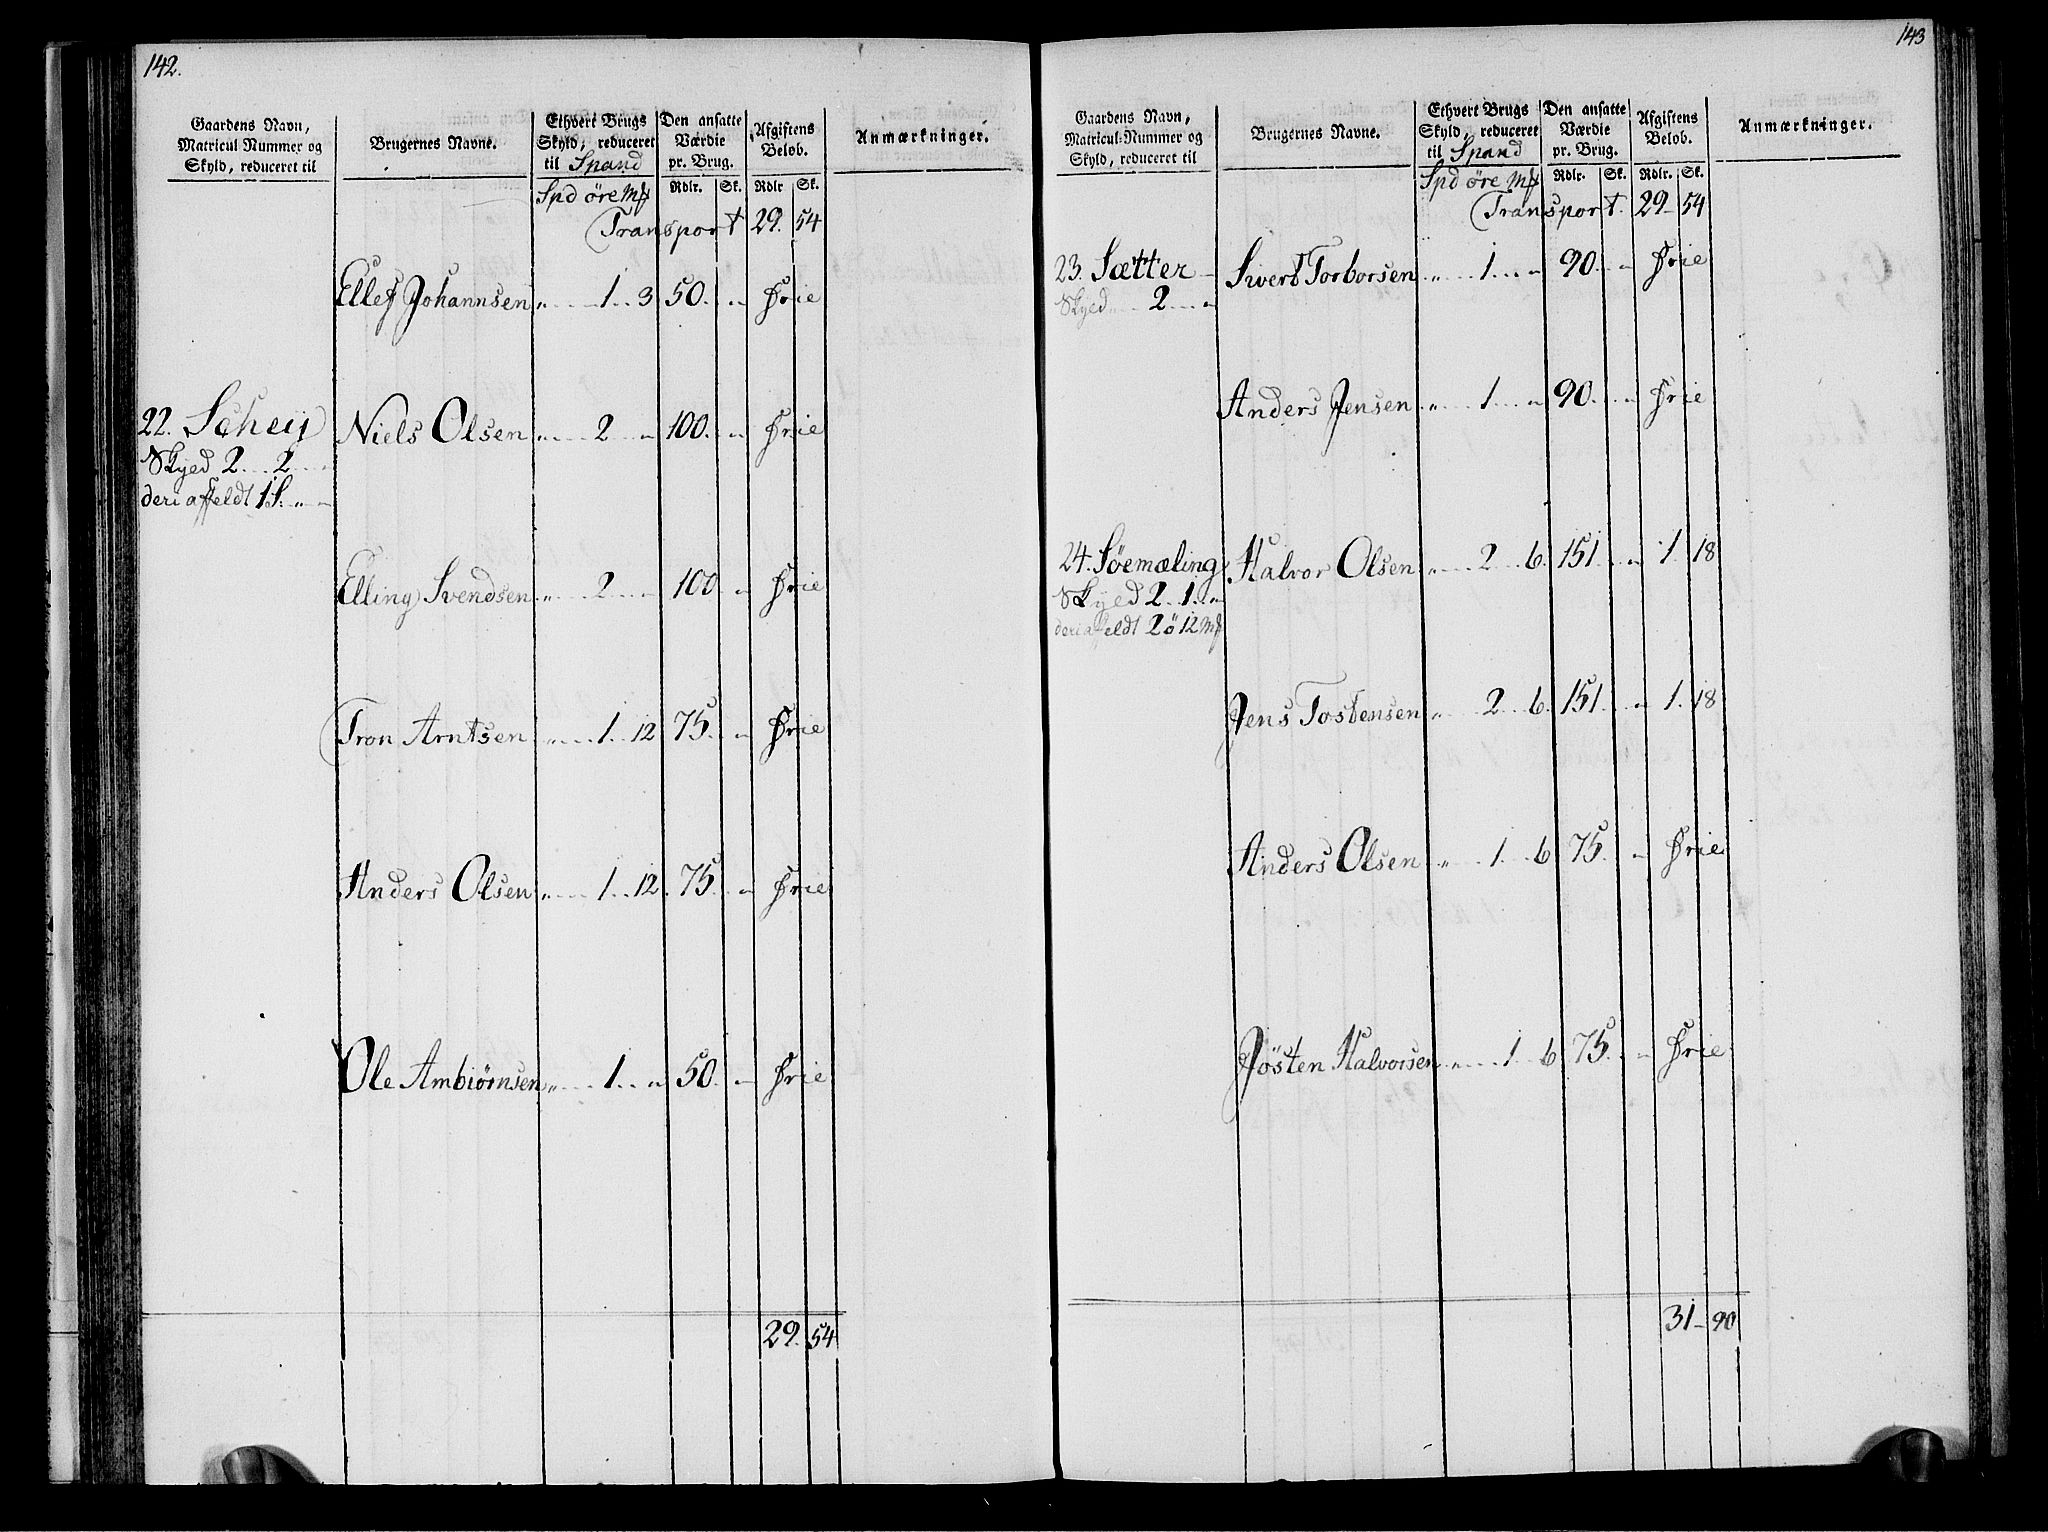 142.
Gaardens Navn,
Matricul Nummer og
Skyld, reduceret til
Brugernes Navne.
Ethvert Brugs
Skyld, reduceret
til Spand
Den ansatte
Værdie
pr. Brug.
Afgiftens
Beløb.
Anmærkninger.
Spd öre Mk Rdlr. Sk. Rdlr Sk.
Transport 29. 54
Ellef Johannsen „ 1 3 50 „ Frie
22. Scheij Niels Olsen „ 2 „ 100 „ Frie
Skyed 2 2
deri affeldt 1 S. „ „
Elling Svendsen „ 2 „ 100 „ Frie
Tron Arntsen „ 1 12 75 „ Frie
Anders Olsen „ 1 12 75 „ Frie
Ole Ambiørnsen „ 1 „ 50 „ Frie
29. 54
143
Gaardens Navn,
Matricul-Nummer og
Skyld, reduceret til
Brugernes Navne.
Ethvert Brugs
Skyld, reduceret
til Spand
Den ansatte
Værdie
pr. Brug.
Afgiftens
Beløb.
Anmærkninger.
Spd öre Mk Rdlr. Sk. Rdlr. Sk.
Transport. 29 54
23. Sætter Sivert Torborsen „ 1 „ 90 „ Frie
Skyed 2 „
Anders Jensen „ 1 „ 90 „ Frie
24. Søemæling Halvor Olsen „ 2 6 151 „ 1 18
Skyed 2 1 „
deri affeldt 2 ö 12 Mk
Jens Tostensen „ 2 6 151 „ 1 18
Anders Olsen „ 1 6 75 „ Frie
Jösten Halvorsen „ 1 6 75 „ Frie
31 90